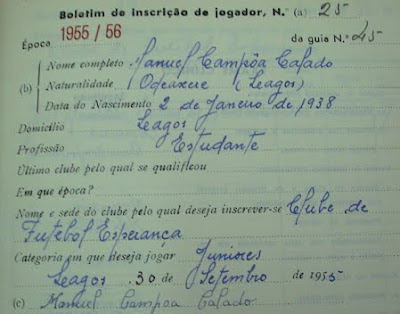 Boletim de inscrição de jogador, N.º (a) 25
Época 1955 / 56 da guia N.º 45
(b) Nome completo Manuel Campôa Calado
Naturalidade Odeaxere (Leagos)
Data do Nascimento 2 de Janeiro de 1938
Domicílio Leagos
Profissão Estudante
Último clube pelo qual se qualificou
Em que época?
Nome e sede do clube pelo qual deseja inscrever-se Clube de
Futebol Esperança
Categoria em que deseja jogar Juniores
Leagos, 30 de Setembro de 1955
(c) Manuel Campoa Calado